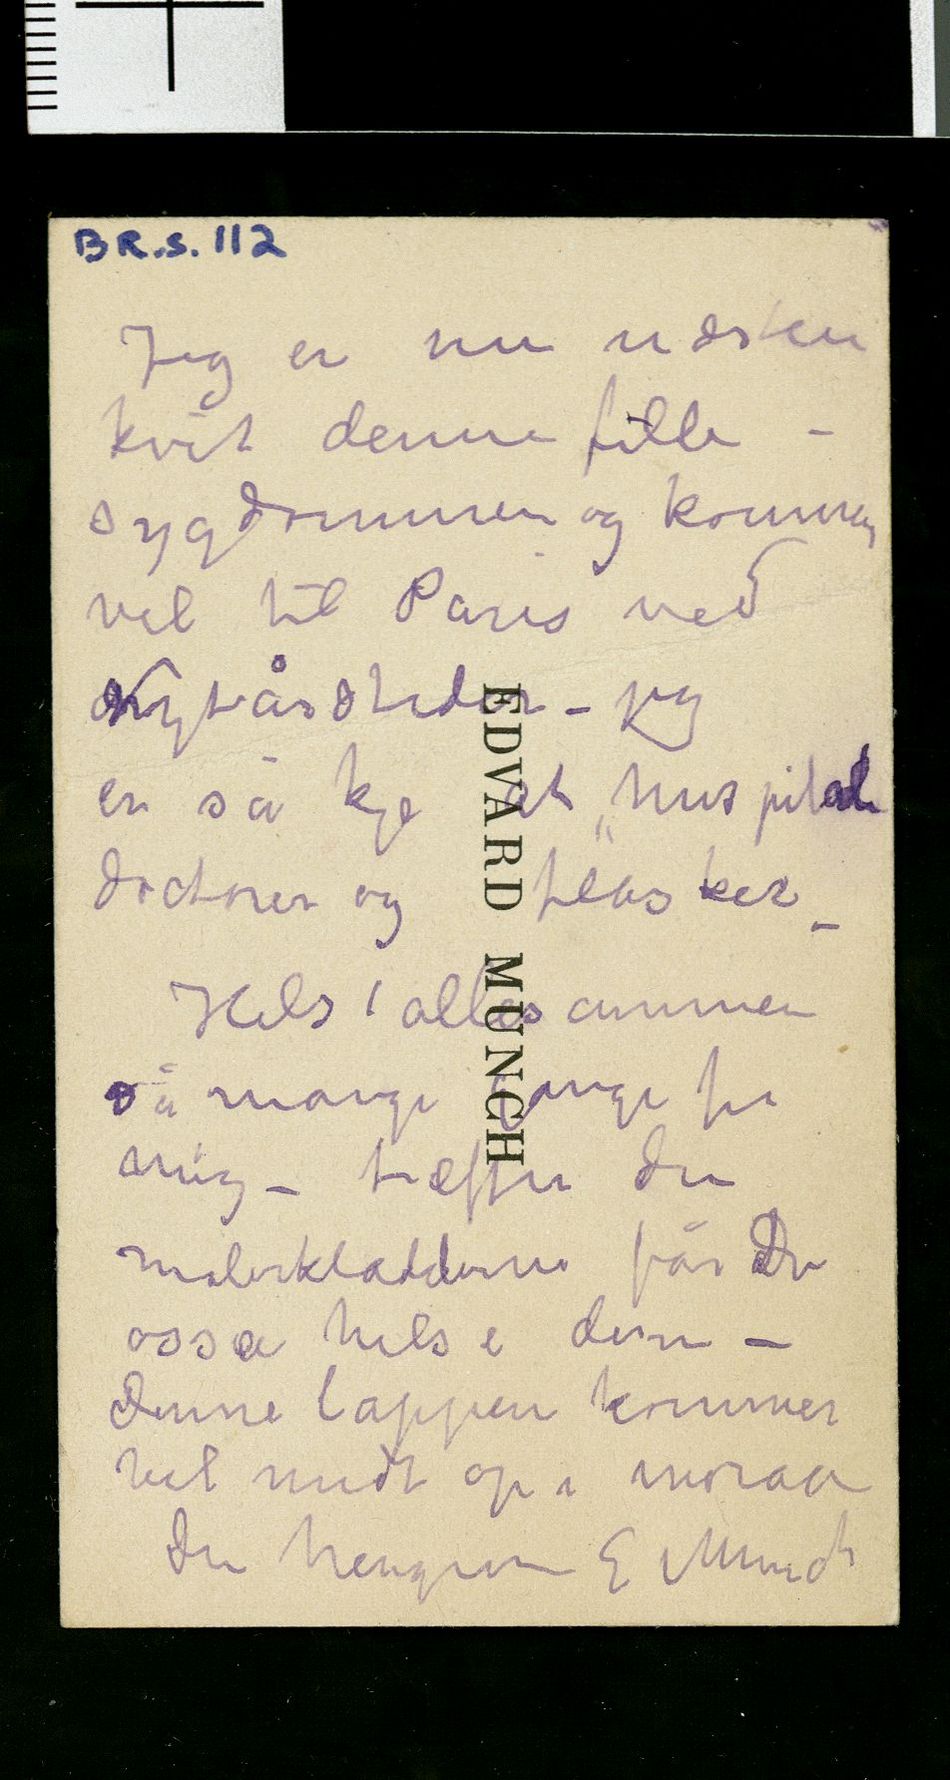 BR.S.112
Jeg er nu næsten
kvit denne fille –
sygdommen og kommer
vel til Paris ved
nytårstider – jeg
er så kje at „hospital
doctorer og flasker –
Hels allesammen
så mange gange fra
mig – træffer du
malerkladderne får Du
osså helse dem –
Denne lappen kommer
vel midt op i moraa
Din hengivne E Munch
EDVARD MUNCH